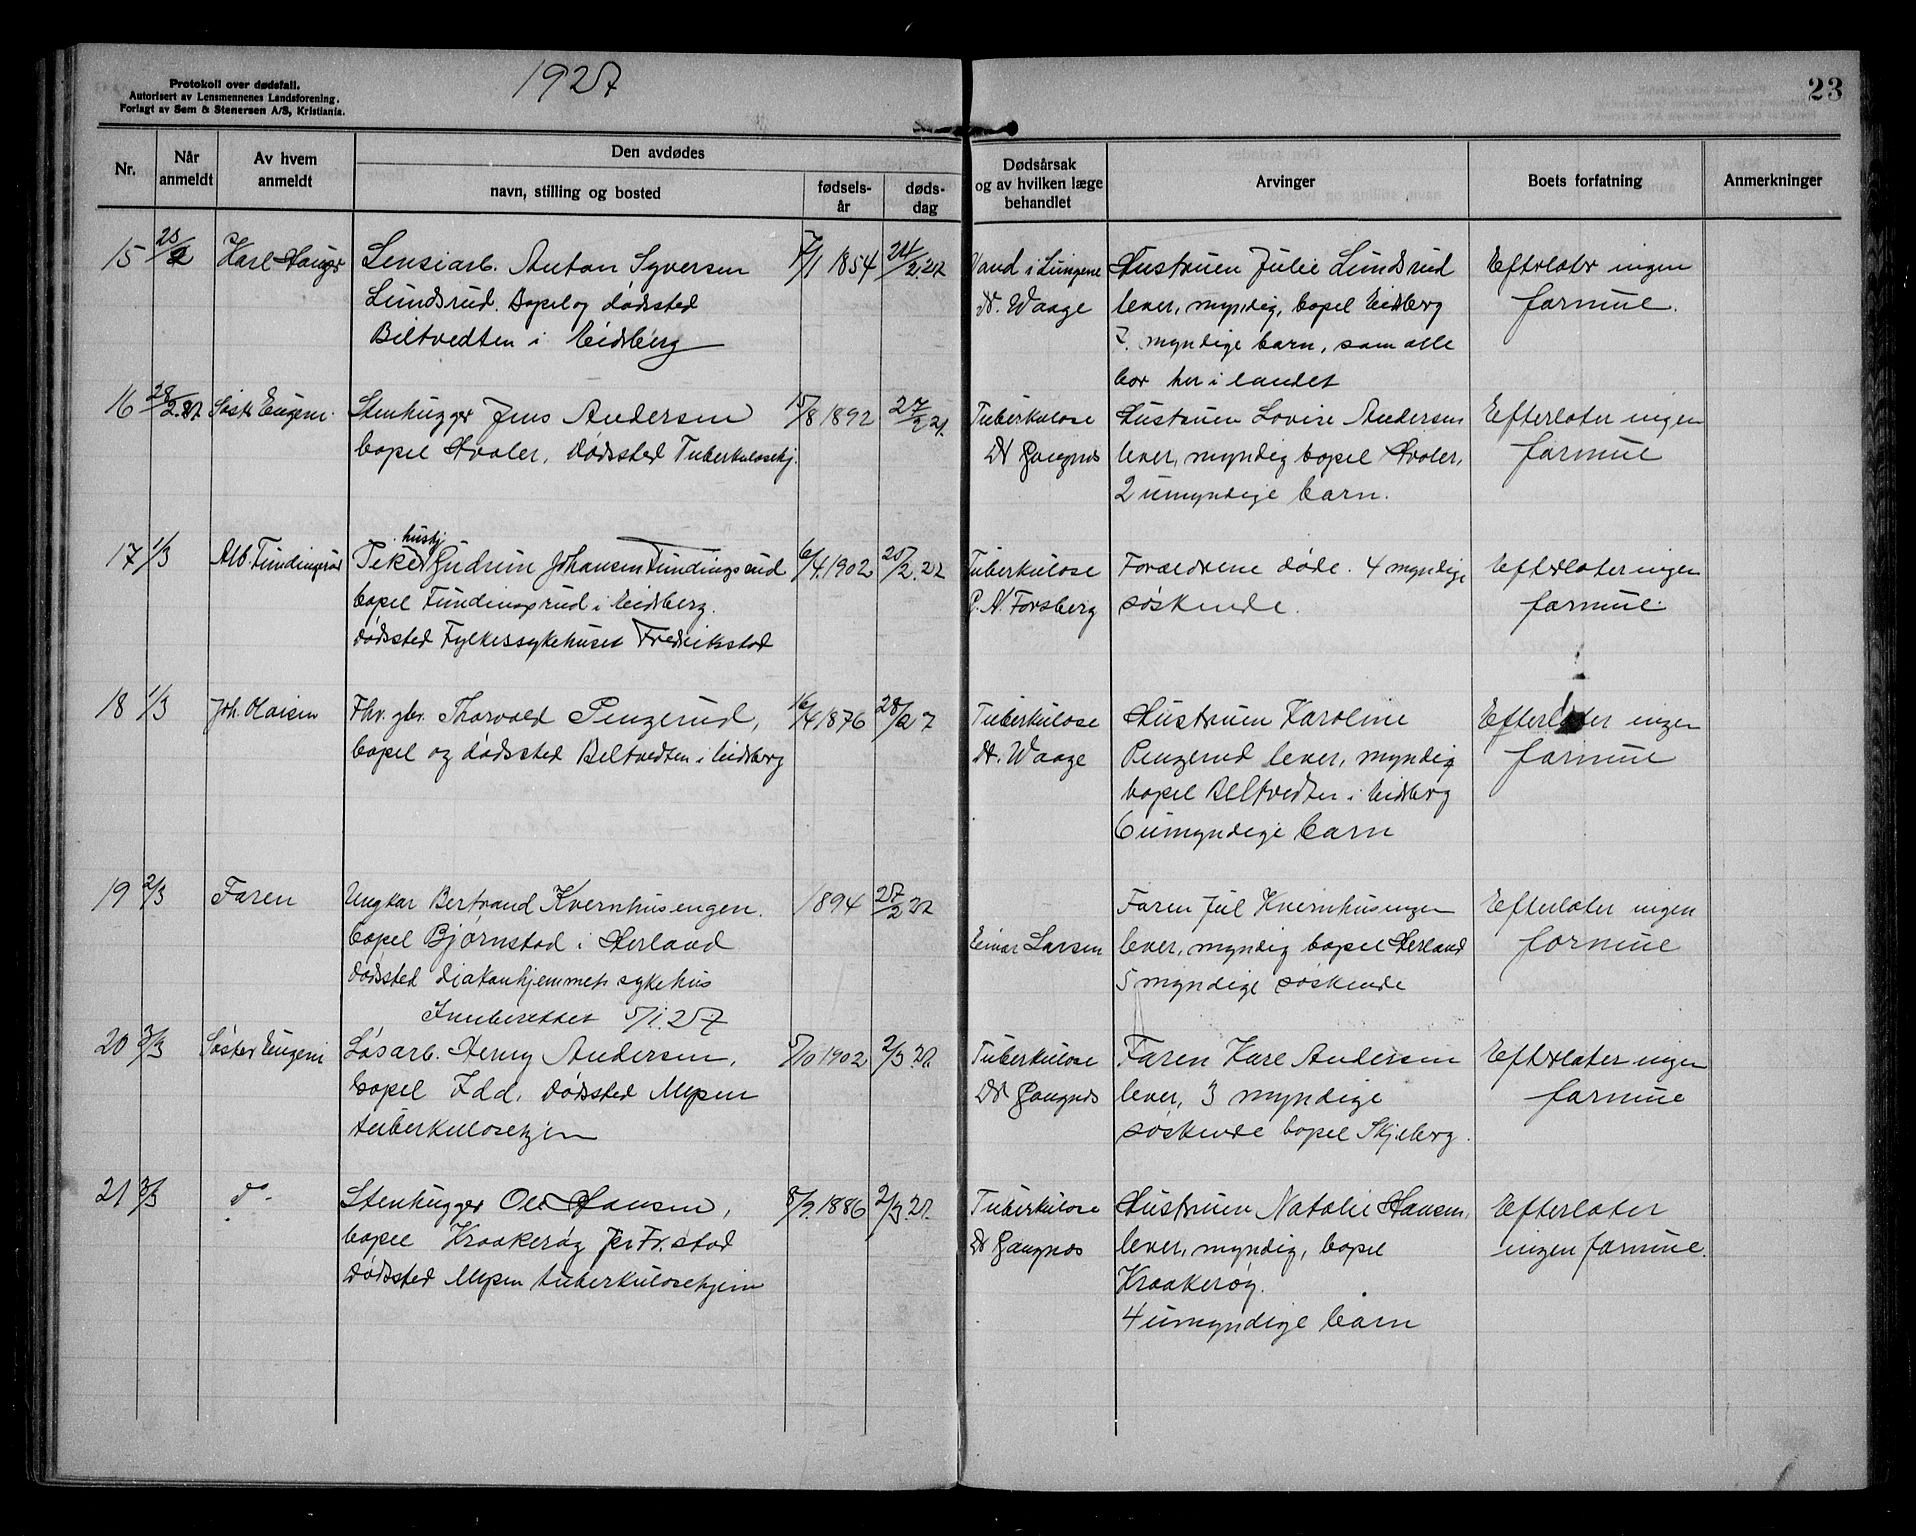 Protokoll over dødsfall.
Autorisert av Lensmennenes Landsforening.
Forlagt av Sem & Stenersen A/S, Kristiania.
1927
23
Nr.
Når anmeldt
Av hvem anmeldt
Den avdødes
navn, stilling og bosted
fødsels-år
døds-dag
Dødsårsak og av hvilken læge behandlet
Arvinger
Boets forfatning
Anmerkninger
15 25/2 Karl Hauger Anton Syversen 7/1 1854 24/2.27 Vand i Lungene Hustruen Julie Lundsrud Efterlater ingen
Lundsrud. Bopel og dødsted Dr. Waage lever, myndig, bopel Eidsberg formue.
Biltvedten i Eidsberg 7. myndige barn, som alle
bor her i landet
16 28/2.27 Eugeni Stenhugger Jens Andersen 5/8 1892 27/2 27. Tuberkulose Hustruen Lovise Andersen Efterlater ingen
bopel Hvaler, dødsted Tuberkulosehj. Dr lever, myndig bopel Hvaler, formue
2 umyndige barn.
17 1/3 Alb. Fundingsrud hushj
Gudrun Johansen Fundingsrud 6/4.1902 25/2.27 Tuberkulose Forældrene døde. 4 myndige Efterlater ingen
bopel Fundingsrud i Eidsberg. Forsberg søskende. formue.
dødsted Fylkessykehuset Fredrikstad
18 1/3 Joh. Olaisen Fhv. gbr. Thorvald Pengerud, 16/4 1876 28/2 7 Tuberkulose Hustruen Karoline Efterlater ingen
bopel og dødsted Biltvedten i Eidsberg Dr. Waage Pengerud lever, myndig formue
bopel Biltvedten i Eidsberg
6 umyndige barn
19 2/3 Faren Ungkar Bertrand Kvernhusengen. 1894 27/2 27 Faren Jul Kvernhusengen Efterlater ingen
bopel Bjørnstad i Herland Einar Larsen lever, myndig bopel Herland formue
dødsted Diakonhjemmets sykehus 5 myndige søskende
Innberettet 5/1.27
20 3/3 Søster Eugeni Løsarb. Henry Andersen, 5/10 1902 2/3.27. Tuberkulose Faren Karl Andersen Efterlater ingen
bopel Idd, dødsted Mysen Dr lever, 3 myndige formue
tuberkulosehjem søskende bopel Skjeberg.
21 3/3 do - Stenhugger Ole Hansen, 8/9.1886 2/3.27. Tuberkulose Hustruen Natalie Hansen, Efterlater
bopel Kraakerøy pr Fr.stad Dr lever, myndig, bopel ingen formue.
dødsted Mysen tuberkulosehjem Kraakerøy.
4 umyndige barn